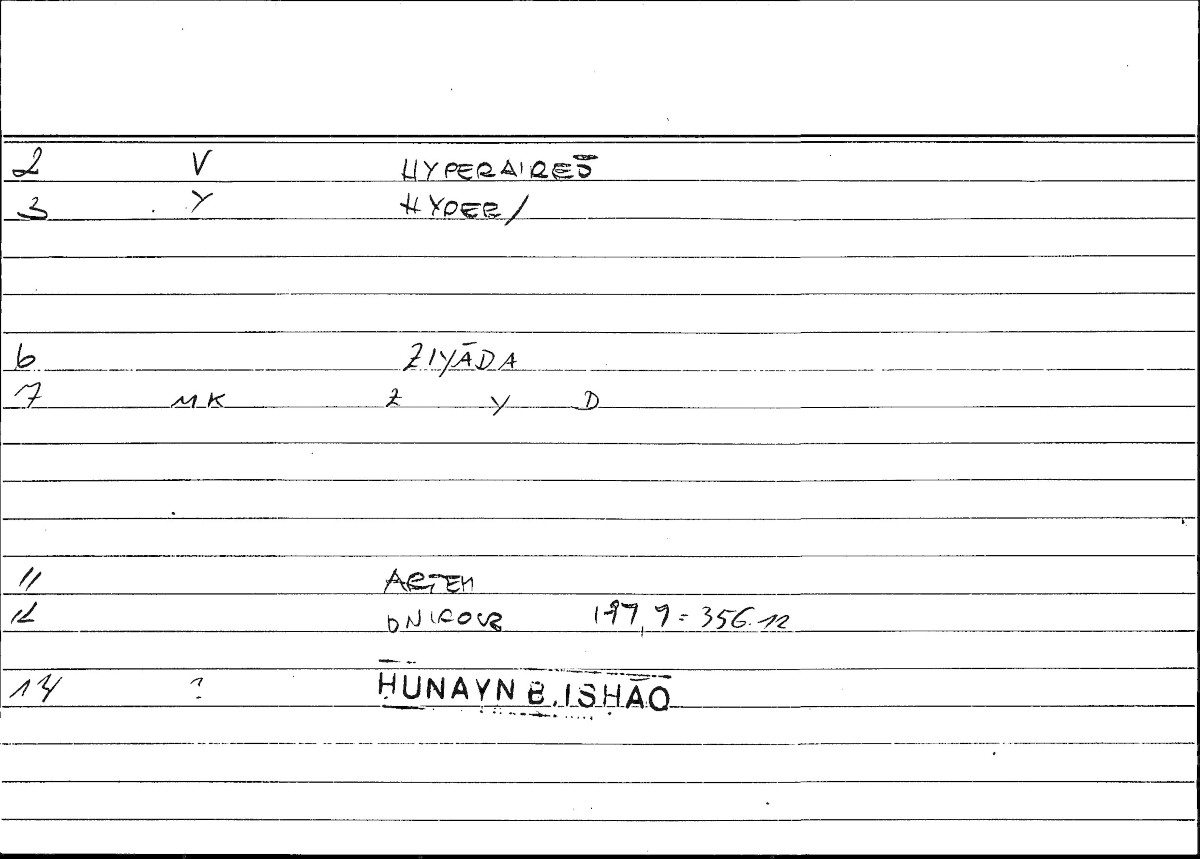 2 V HYPERAIRES̄
3 Y HYPER/
6 ZIYĀDA
7 MK Z Y D
11 ARTEM
12 ONIROCR 177,9 = 356.12
14 ? ḤUNAYN B. ISḤĀQ